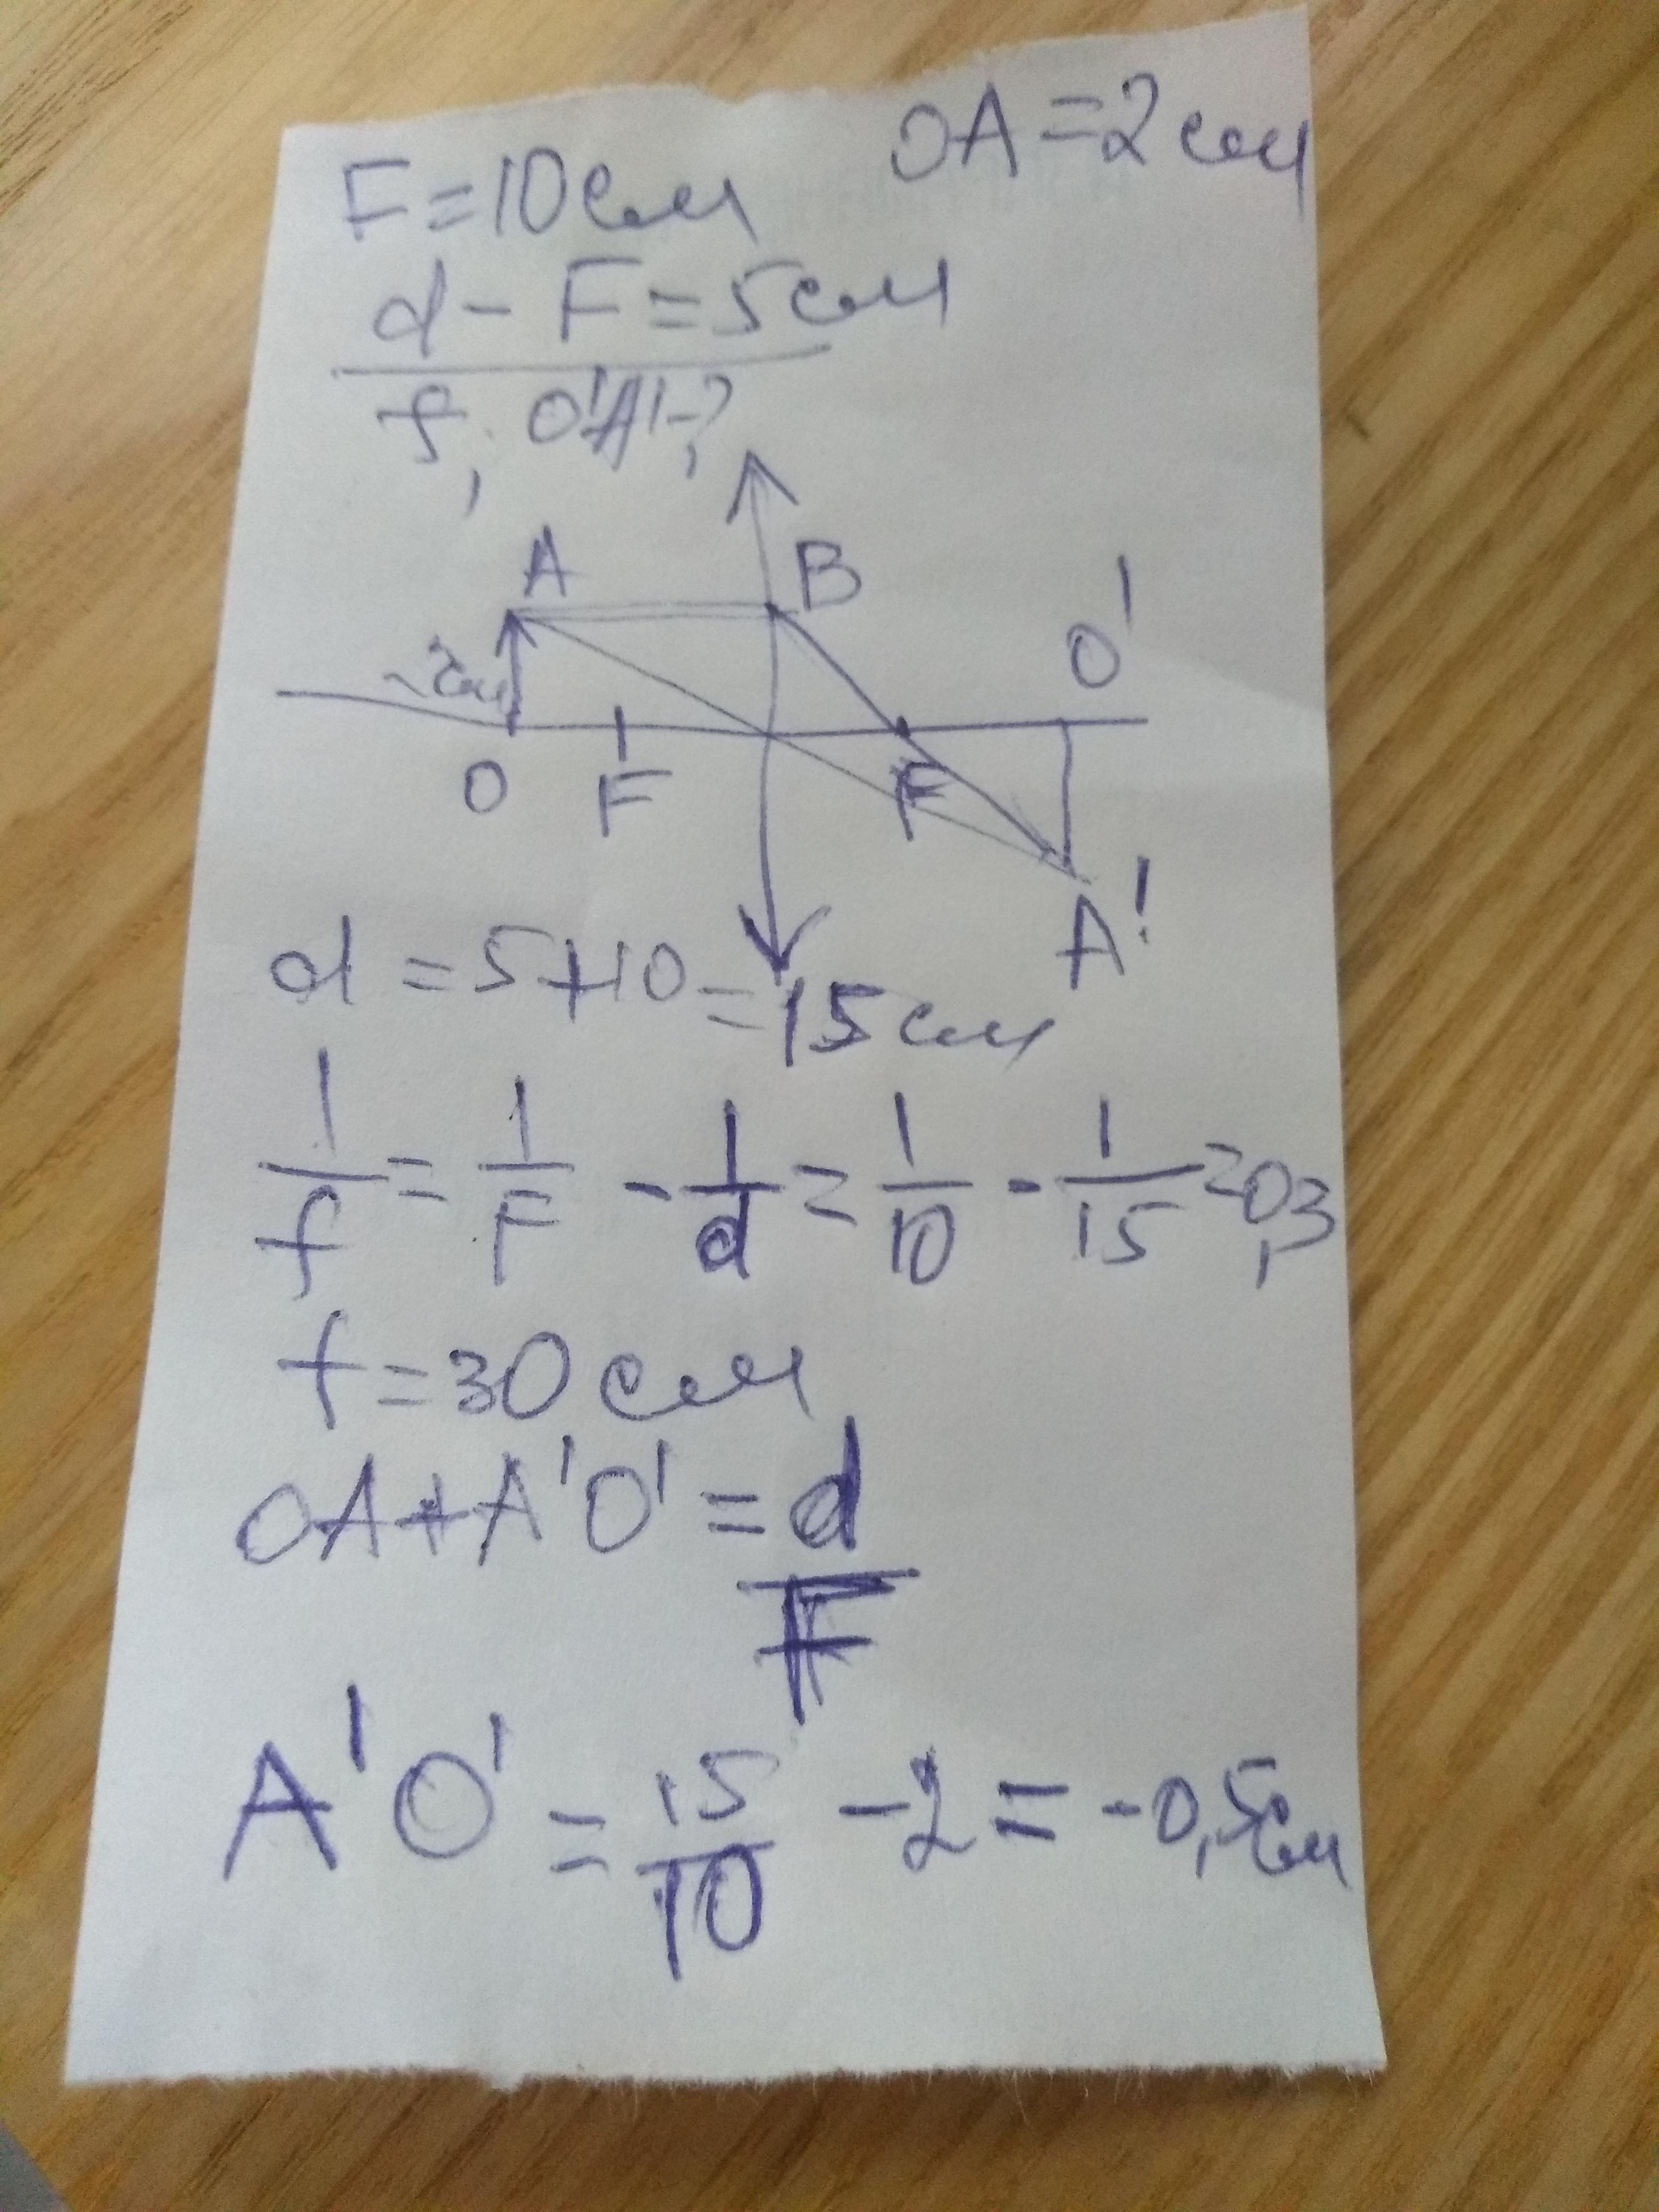 F=10см OA=2см
d-F=5см
f, O'A'-?
A B
2см O'
O F F
A'
d=5+10=15см
1/f = 1/F - 1/d = 1/10 - 1/15 = 0,3
f=30см
OA+A'O' = d/F
A'O' = 15/10 - 2 = -0,5см